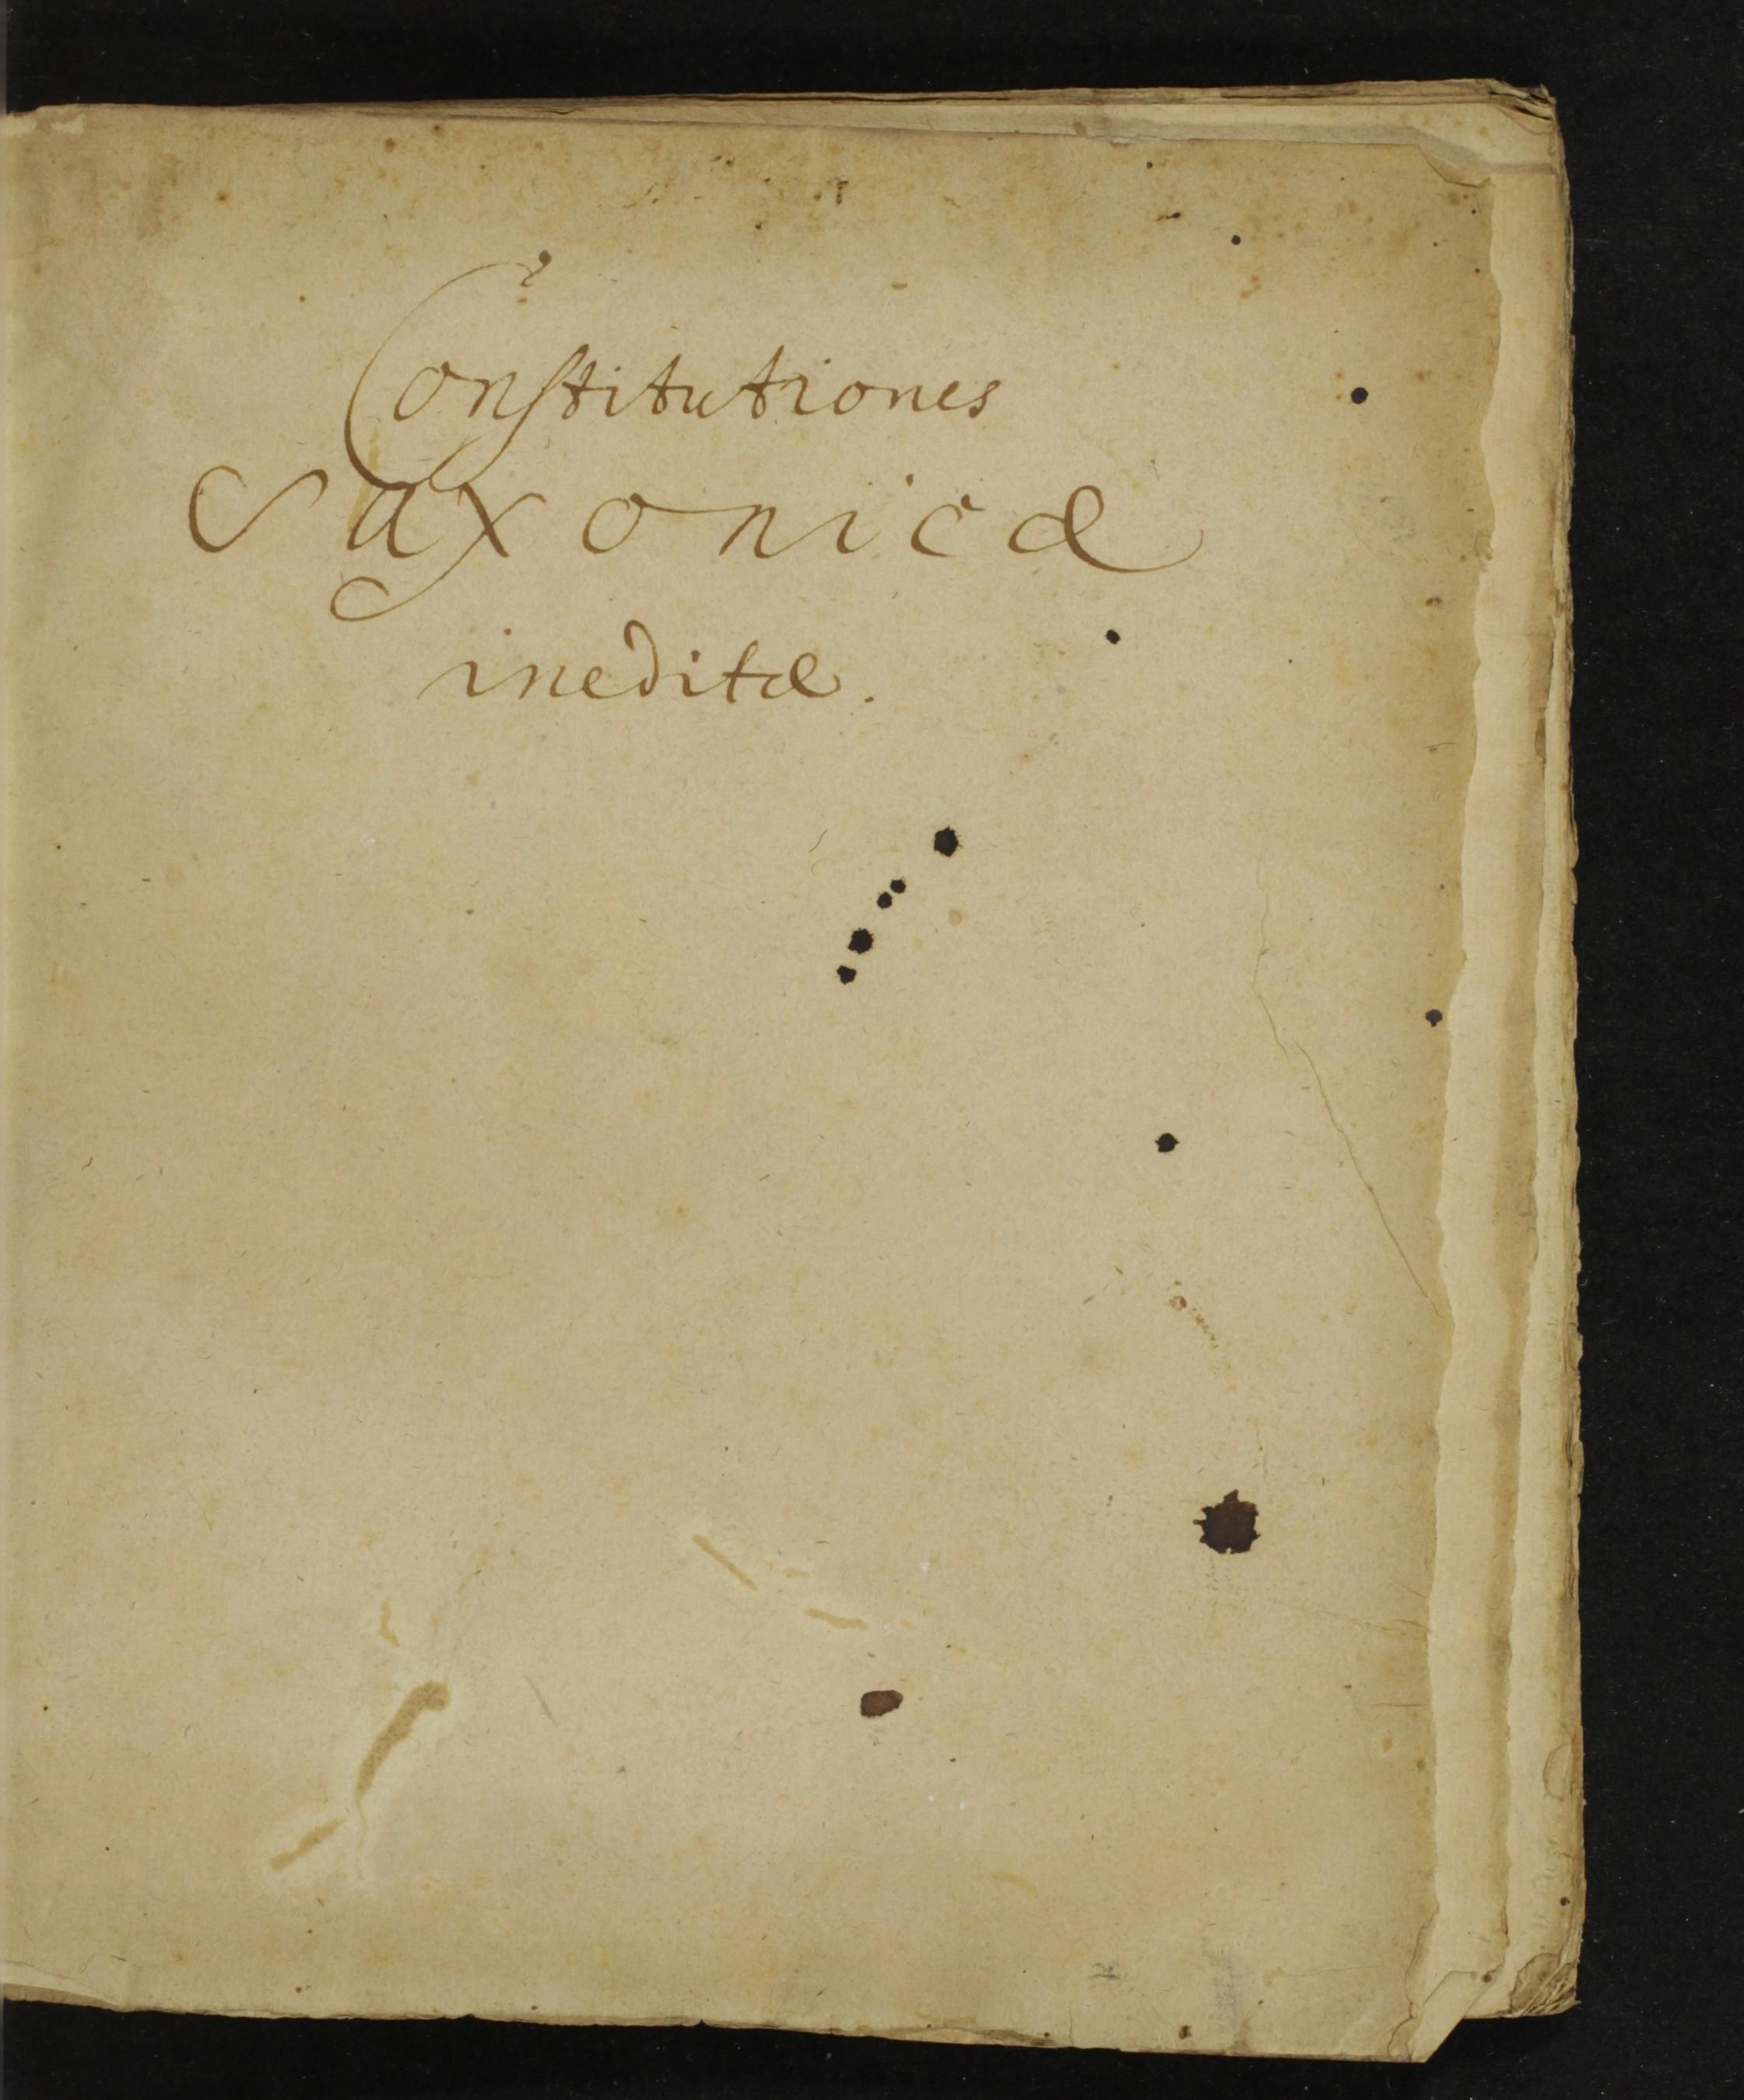 Conſtitutiones
Saxonicæ
ineditæ.